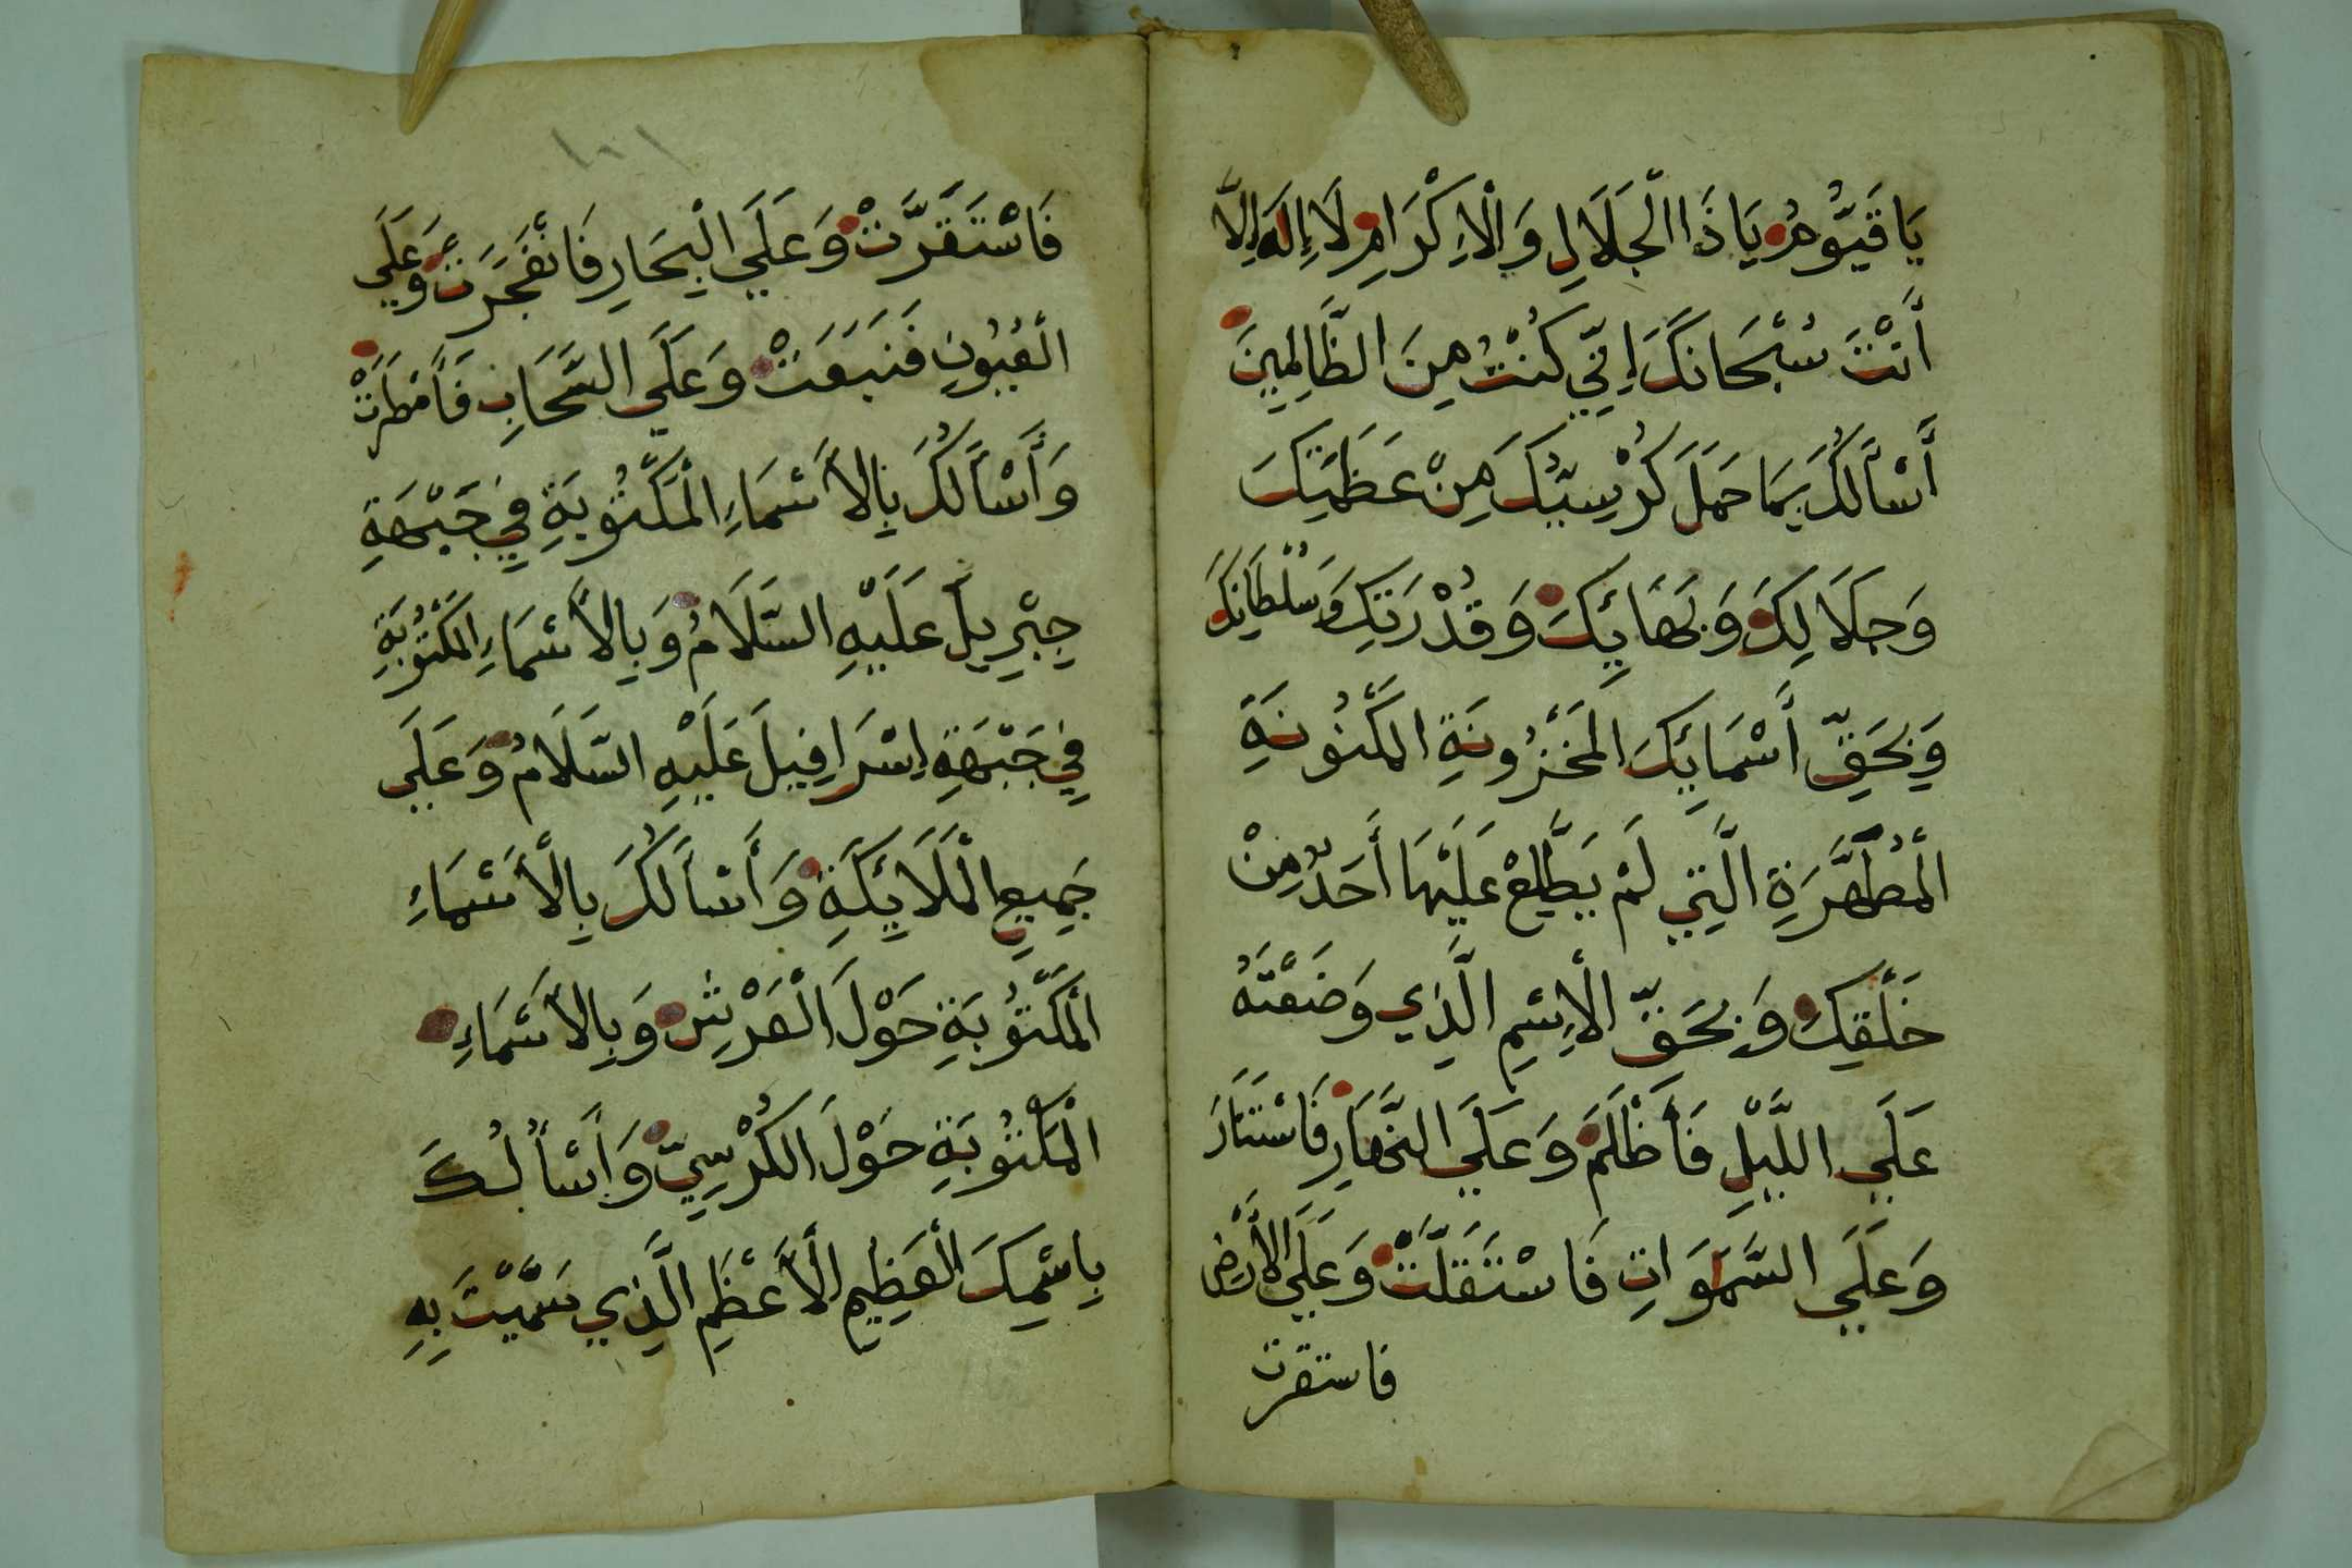 يَا قَيُّوْمُ يَا ذَا الْجَلَالِ وَالْاِكْرَامِ لَا إِلَهَ اِلَّا
أَنْتَ سُبْحَانَكَ إِنِّي كُنْتُ مِنَ الظَّالِمِينَ
أَسْأَلُكَ بِمَا حَمَلَ كُرْسِيُّكَ مِنْ عَظَمَتِكَ
وَجَلَالِكَ وَبَهَائِكَ وَقُدْرَتِكَ وَسُلْطَانِكَ
وَبِحَقِّ أَسْمَائِكَ الْمَخْزُونَةِ الْمَكْنُونَةِ
الْمُطَهَّرَةِ الَّتِي لَمْ يَطَّلِعْ عَلَيْهَا أَحَدٌ مِنْ
خَلْقِكَ وَبِحَقِّ الْاِسْمِ الَّذِي وَضَعْتَهُ
عَلَي اللَّيْلِ فَأَظْلَمَ وَعَلَي النَّهَارِ فَاسْتَنَارَ
وَعَلَي السَّمَوَاتِ فَاسْتَقَلَّتْ وَعَلَي الْأَرْضِ
فاستقرت
١٠١
فَاسْتَقَرَّتْ وَعَلَي الْبِحَارِ فَانْفَجَرَتْ وَعَلَي
الْعُيُونِ فَنَبَعَتْ وَعَلَي السَّحَابِ فَأَمْطَرَتْ
وَأَسْأَلُكَ بِالْأَسْمَاءِ الْمَكْتُوْبَةِ فِي جَبْهَةِ
جِبْرِيلَ عَلَيْهِ السَّلَامُ وَبِالْأَسْمَاءِ الْمَكْتُوْبَةِ
فِي جَبْهَةِ اِسْرَافِيلَ عَلَيْهِ السَّلَامُ وَعَلَي
جَمِيعِ الْمَلَائِكَةِ وَأَسْأَلُكَ بِالْأَسْمَاءِ
الْمَكْتُوْبَةِ حَوْلَ الْعَرْشِ وَبِالْأَسْمَاءِ
الْمَكْتُوْبَةِ حَوْلَ الْكُرْسِيِّ وَأَسْأَلُكَ
بِاسْمِكَ الْعَظِيمِ الْأَعْظَمِ الَّذِي سَمَّيْتَ بِهِ